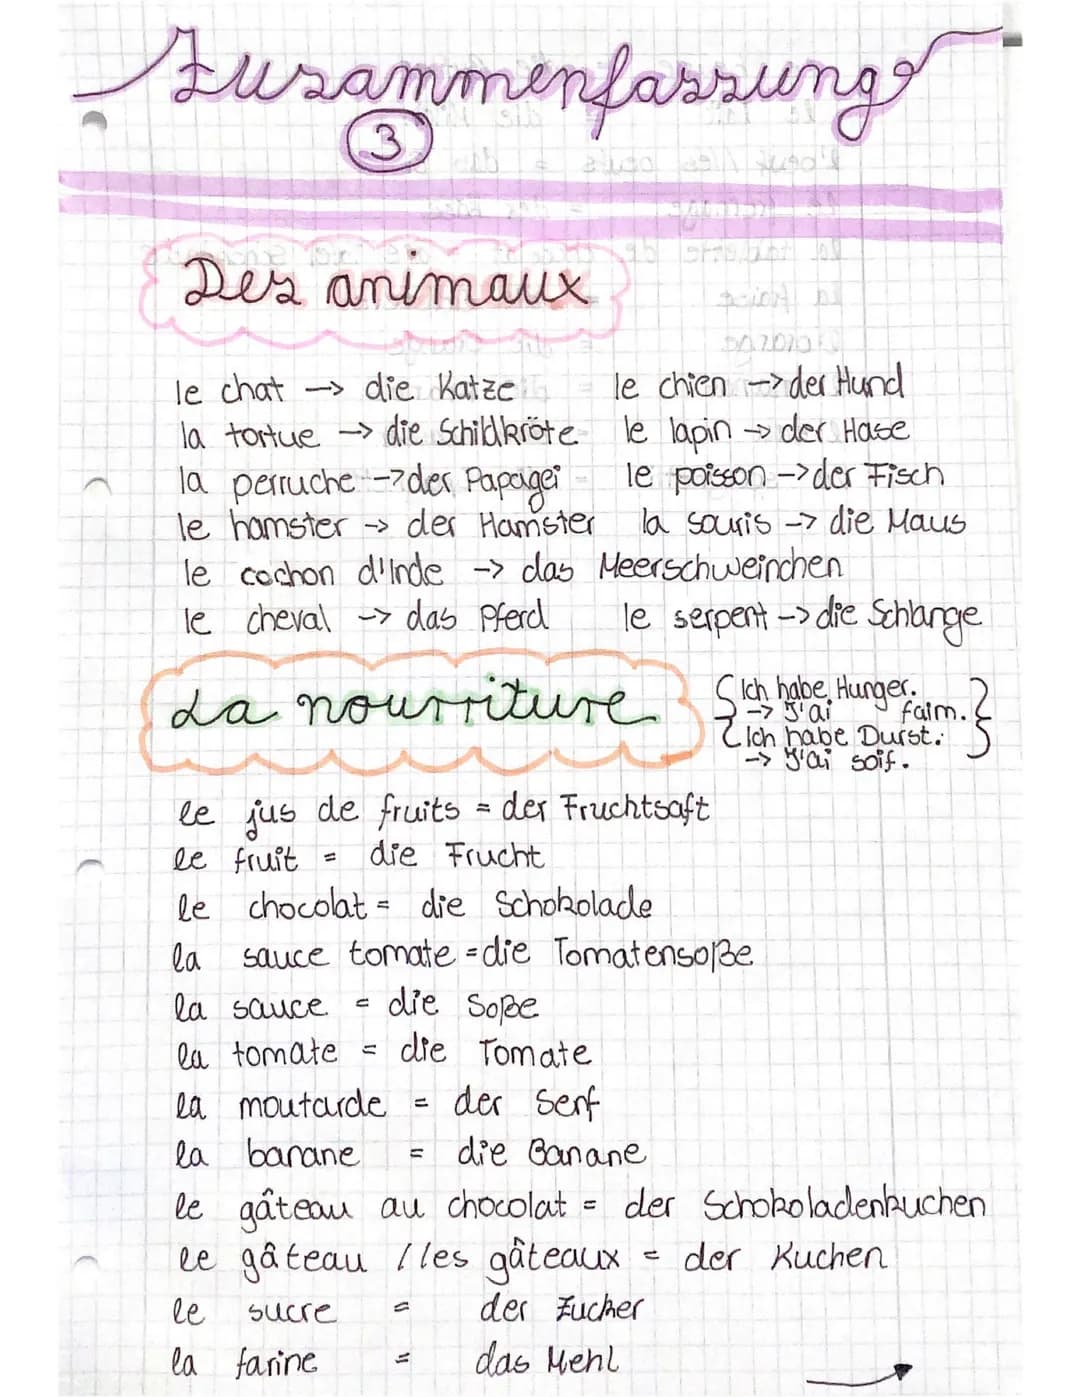 Zusammenfassung
3
Des animaux
le chat -> die Katze le chien -> der Hund
la tortue -> die Schildkröte le lapin -> der Hase
la perruche -> der Papagei le poisson -> der Fisch
le hamster -> der Hamster la souris -> die Maus
le cochon d'Inde -> das Meerschweinchen
le cheval -> das Pferd le serpent -> die Schlange
La nourriture
{Ich habe Hunger.
-> J'ai faim.}
{Ich habe Durst.
-> J'ai soif.
le jus de fruits = der Fruchtsaft
le fruit = die Frucht
le chocolat = die Schokolade
la sauce tomate = die Tomatensoße
la sauce = die Soße
la tomate = die Tomate
la moutarde = der Senf
la banane = die Banane
le gâteau au chocolat = der Schokoladenkuchen
le gâteau / les gâteaux = der Kuchen
le sucre = der Zucker
la farine = das Mehl